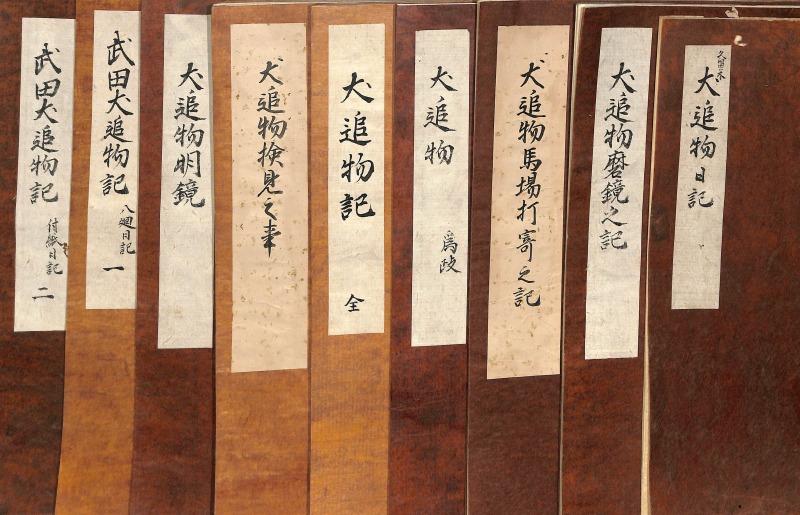 犬追物日記
犬追物磨鏡之記
犬追物馬場打寄之記
犬追物
為政
犬追物記
全
犬追物検見之事
犬追物明鏡
武田犬追物記
八廻日記
一
武田犬追物記
付紙日記
二